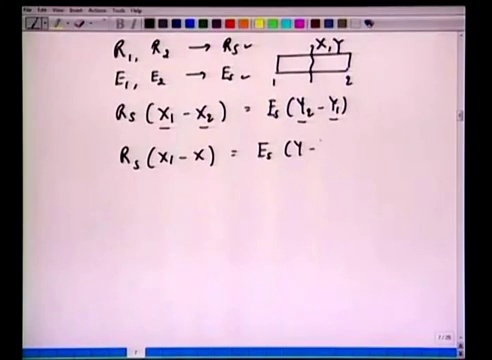 File Edit View Insert Actions Tools Help
R₁, R₂ → Rs ✓
X, Y
E₁, E₂ → Es ✓
1 2
Rs (X₁ - X₂) = Es (Y₂ - Y₁)
Rs (X₁ - X) = Es (Y -